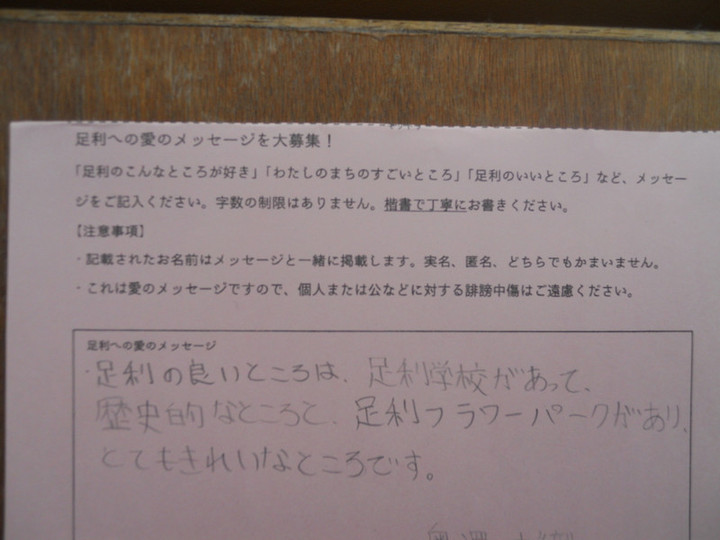 足利への愛のメッセージを大募集！
「足利のこんなところが好き」「わたしのまちのすごいところ」「足利のいいところ」など、メッセー
ジをご記入ください。字数の制限はありません。楷書で丁寧にお書きください。
【注意事項】
・記載されたお名前はメッセージと一緒に掲載します。実名、匿名、どちらでもかまいません。
・これは愛のメッセージですので、個人または公などに対する誹謗中傷はご遠慮ください。
足利への愛のメッセージ
・足利の良いところは、足利学校があって、
歴史的なところと、足利フラワーパークがあり、
とてもきれいなところです。